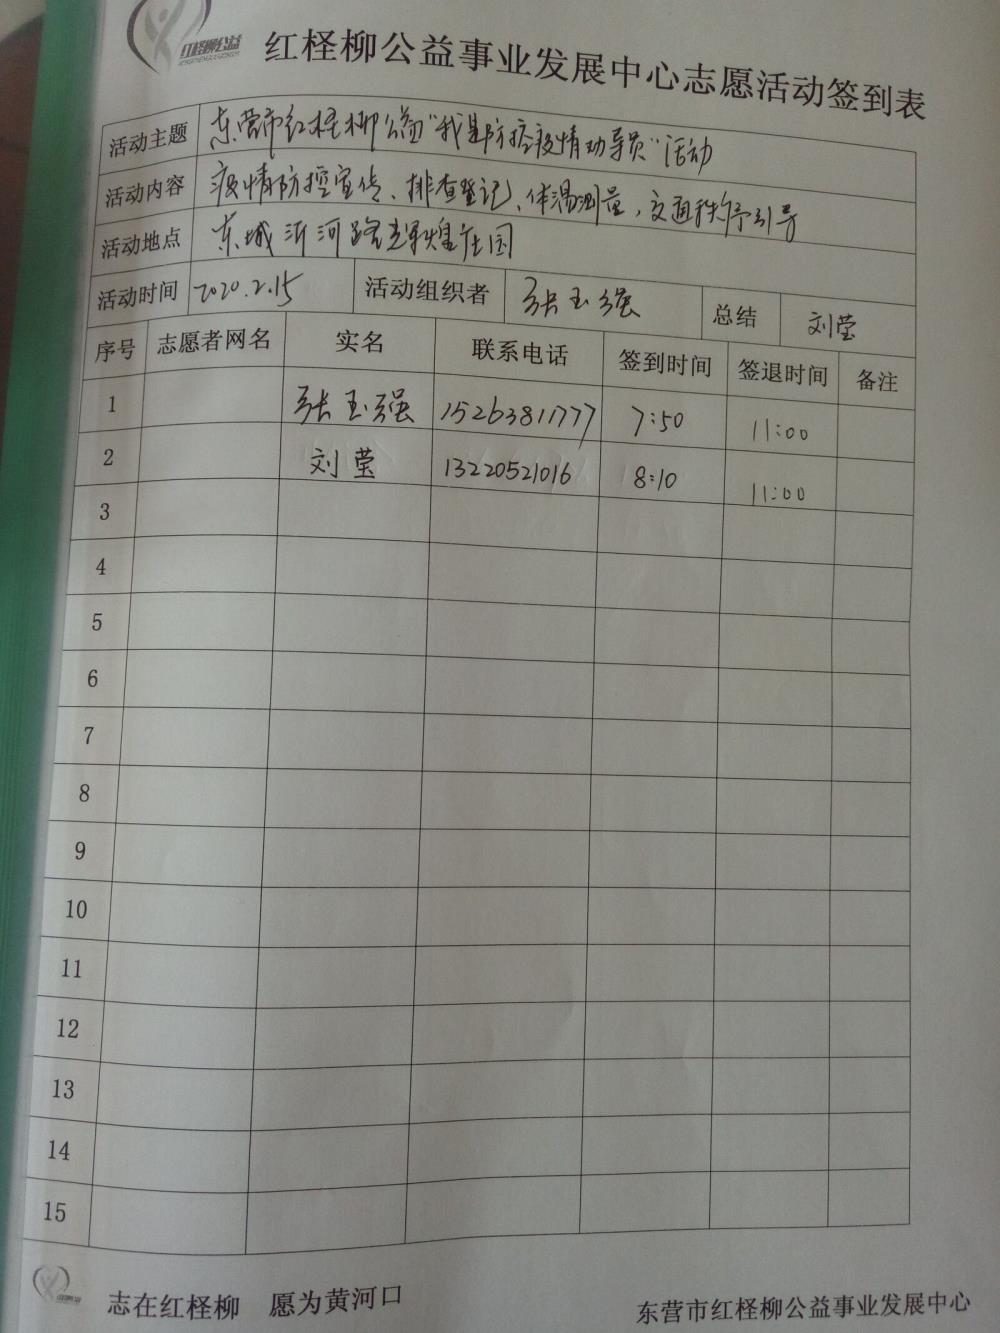 红柽柳公益
红柽柳公益事业发展中心志愿活动签到表
活动主题 东营市红柽柳公益“我是防控疫情劝导员”活动
活动内容 疫情防控宣传、排查登记、体温测量，交通秩序引导
活动地点 东城沂河路辉煌庄园
活动时间 2020.2.15 活动组织者 张玉强 总结 刘莹
序号 志愿者网名 实名 联系电话 签到时间 签退时间 备注
1 张玉强 15263811777 7:50 11:00
2 刘莹 13220521016 8:10 11:00
3
4
5
6
7
8
9
10
11
12
13
14
15
志在红柽柳 愿为黄河口
东营市红柽柳公益事业发展中心